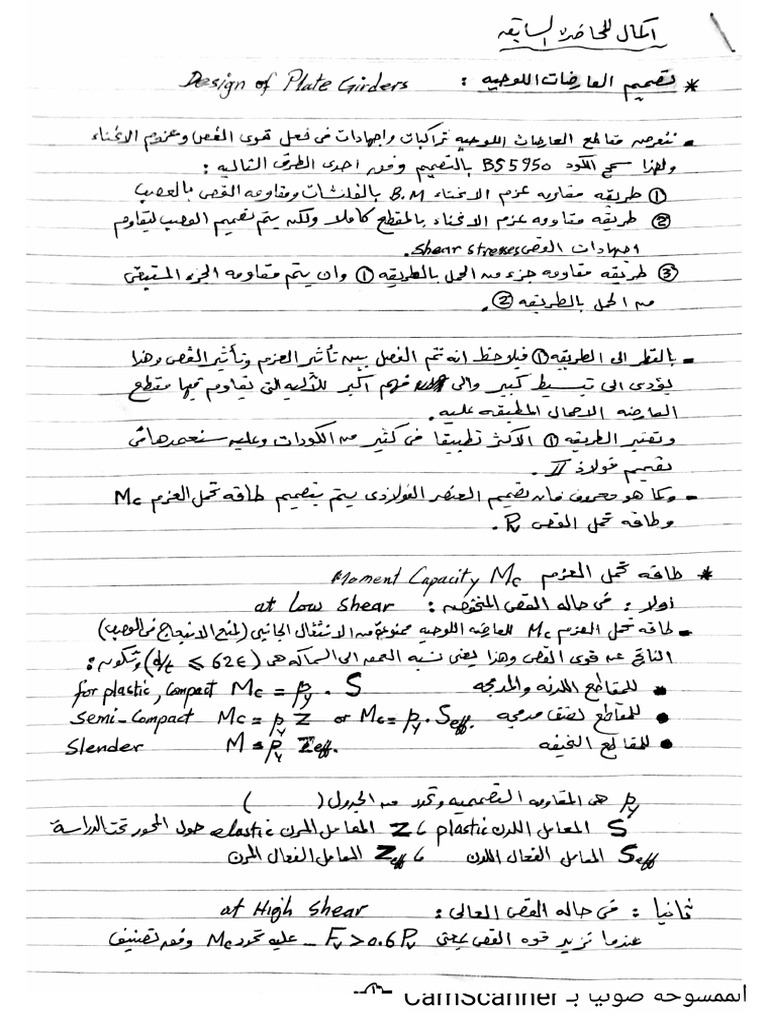 اكمال للمحاضرة السابقه
* تصميم العارضات اللوحيه : Design of Plate Girders
- تتعرض مقاطع العارضات اللوحيه تراكبات واجهادات في فعل قوى القص وعزوم الانحناء
ولهذا سمح الكود BS5950 بالتصميم وفق احدى الطرق التاليه :
① طريقه مقاومه عزم الانحناء B.M بالفلنشات ومقاومه القص بالعصب
② طريقه مقاومه عزم الانحناء بالمقطع كاملا ولكن يتم تصميم العصب ليقاوم
اجهادات القص Shear stresses.
③ طريقه مقاومه جزء من الحمل بالطريقه ① وان يتم مقاومه الجزء المتبقي
من الحمل بالطريقه ②.
- بالنظر الى الطريقه ① فيلاحظ انه تم الفصل بين تأثير العزم وتأثير القص وهذا
يؤدي الى تبسيط كبير والى فهم اكبر للآليه التي يقاوم بها مقطع
العارضه الاحمال المطبقه عليه.
وتعتبر الطريقه ① الاكثر تطبيقا في كثير من الكودات وعليه سنعتمدها في
تصميم فولاذ II.
- وكما هو معروف فان تصميم العنصر الفولاذي يتم بتصميم طاقه تحمل العزم Mc
وطاقه تحمل القص Pv.
* طاقه تحمل العزم Moment Capacity Mc
اولا : في حاله القص المنخفض : at Low Shear
- طاقه تحمل العزم Mc للعارضه اللوحيه ممنوعة من الانتقال الجانبي (لمنع الانبعاج في العصب)
الناتج عن قوى القص وهذا يعني نسبه العمق الى السماكه هي (d/t ⩽ 62ε) وتكون :
* للمقاطع اللدنه والمدمجه for plastic, Compact Mc = py . S
• للمقاطع نصف مدمجه Semi-Compact Mc = py Z or Mc = py . Seff.
• للمقاطع النحيفه Slender M = py Zeff.
py هي المقاومه التصميميه وتحدد من الجدول ( )
S المعامل اللدن plastic و Z المعامل المرن elastic حول المحور تحت الدراسة
Seff المعامل الفعال اللدن و Zeff المعامل الفعال المرن
ثانيا : في حاله القص العالي : at High Shear
عندما تزيد قوه القص يعني Fv > 0.6 Pv - عليه تحدد Mc وفق تصنيف
الممسوحة ضوئيا بـ CamScanner